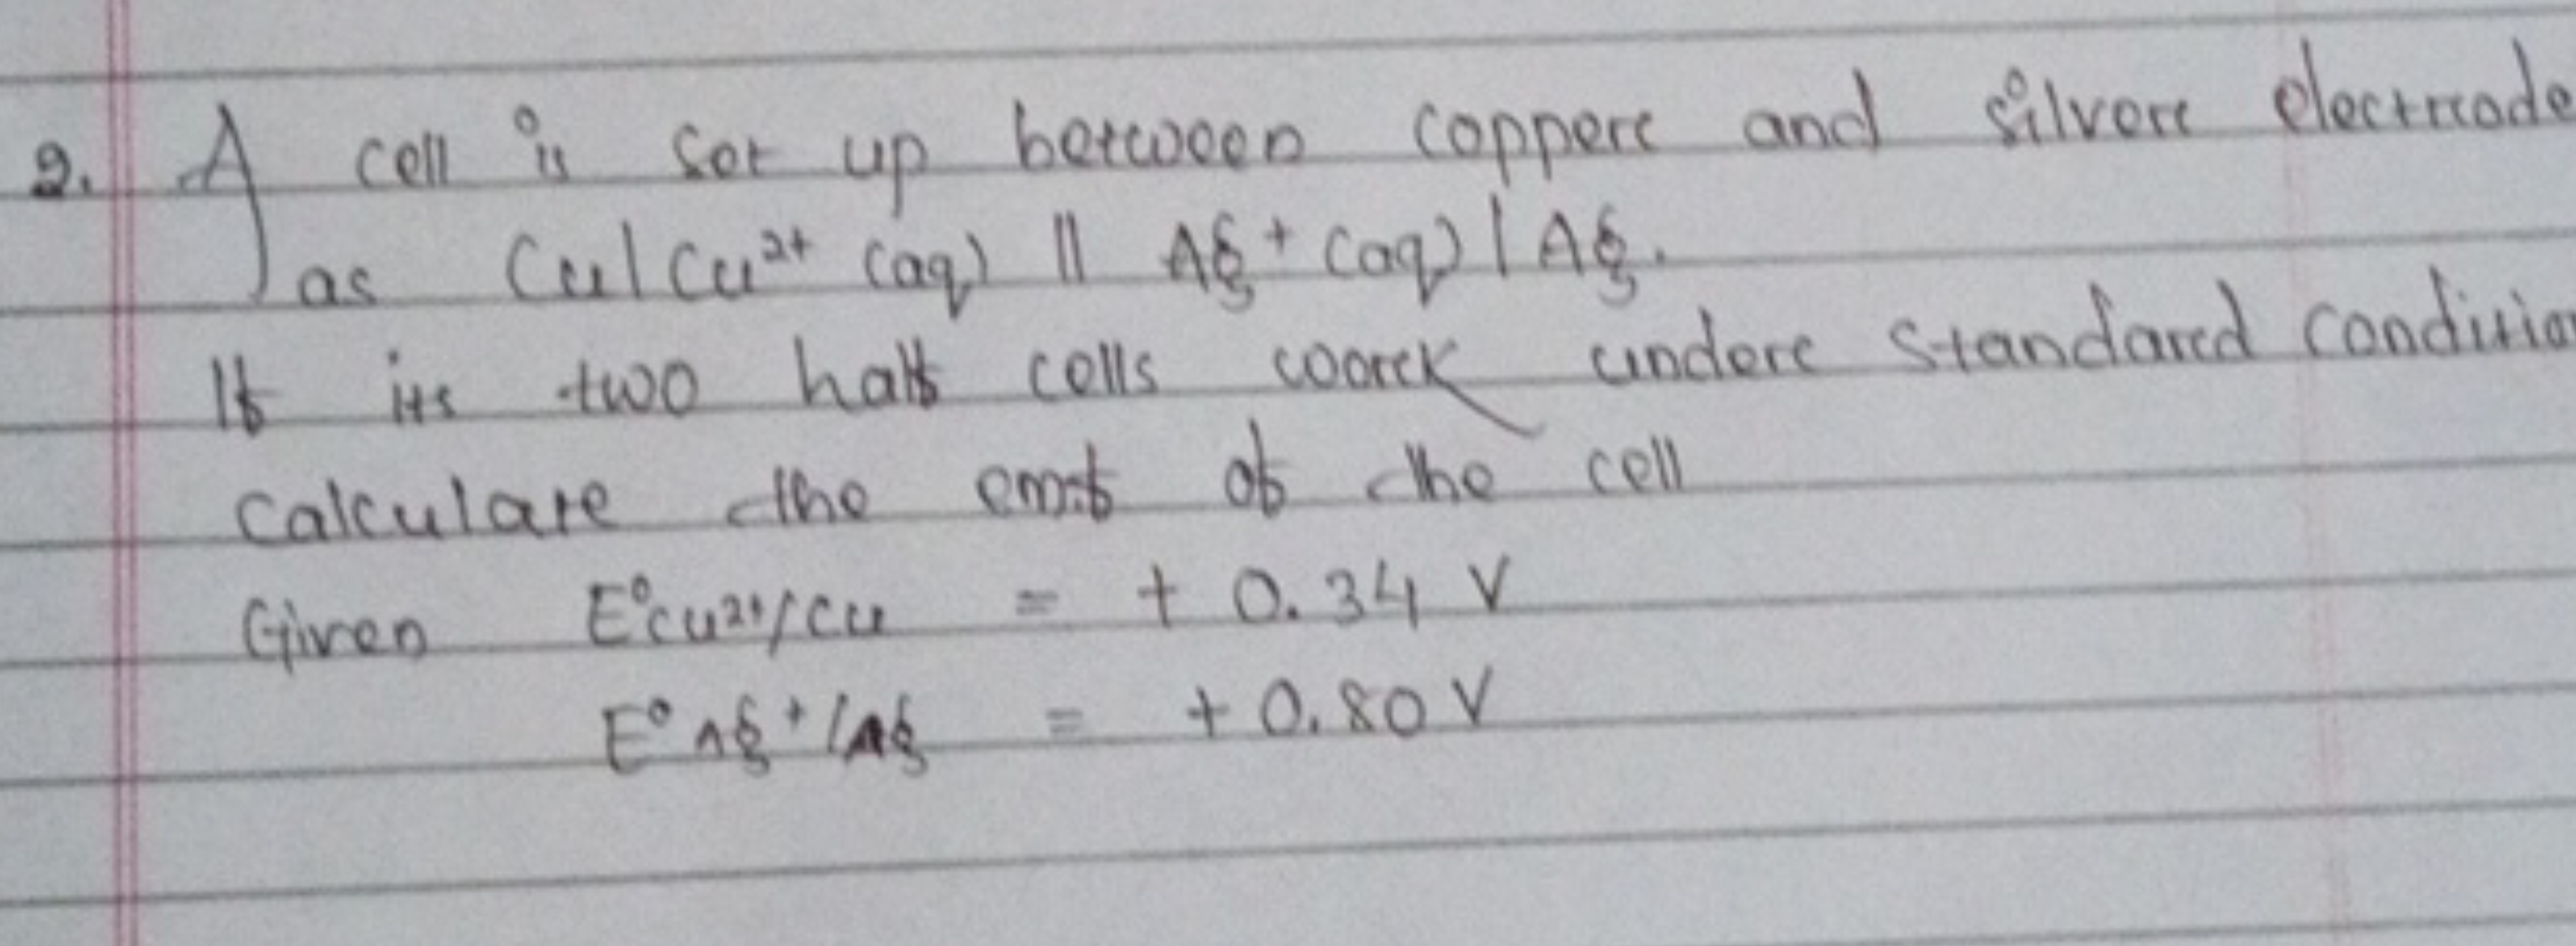 2. A cell is set up between copper and silver electrode
as Cu|Cu²⁺ (aq) || Ag⁺ (aq) | Ag.
If its two half cells work under standard condition
calculate the em.f of the cell
Given E°Cu²⁺/Cu = + 0.34 V
E°Ag⁺/Ag = + 0.80 V